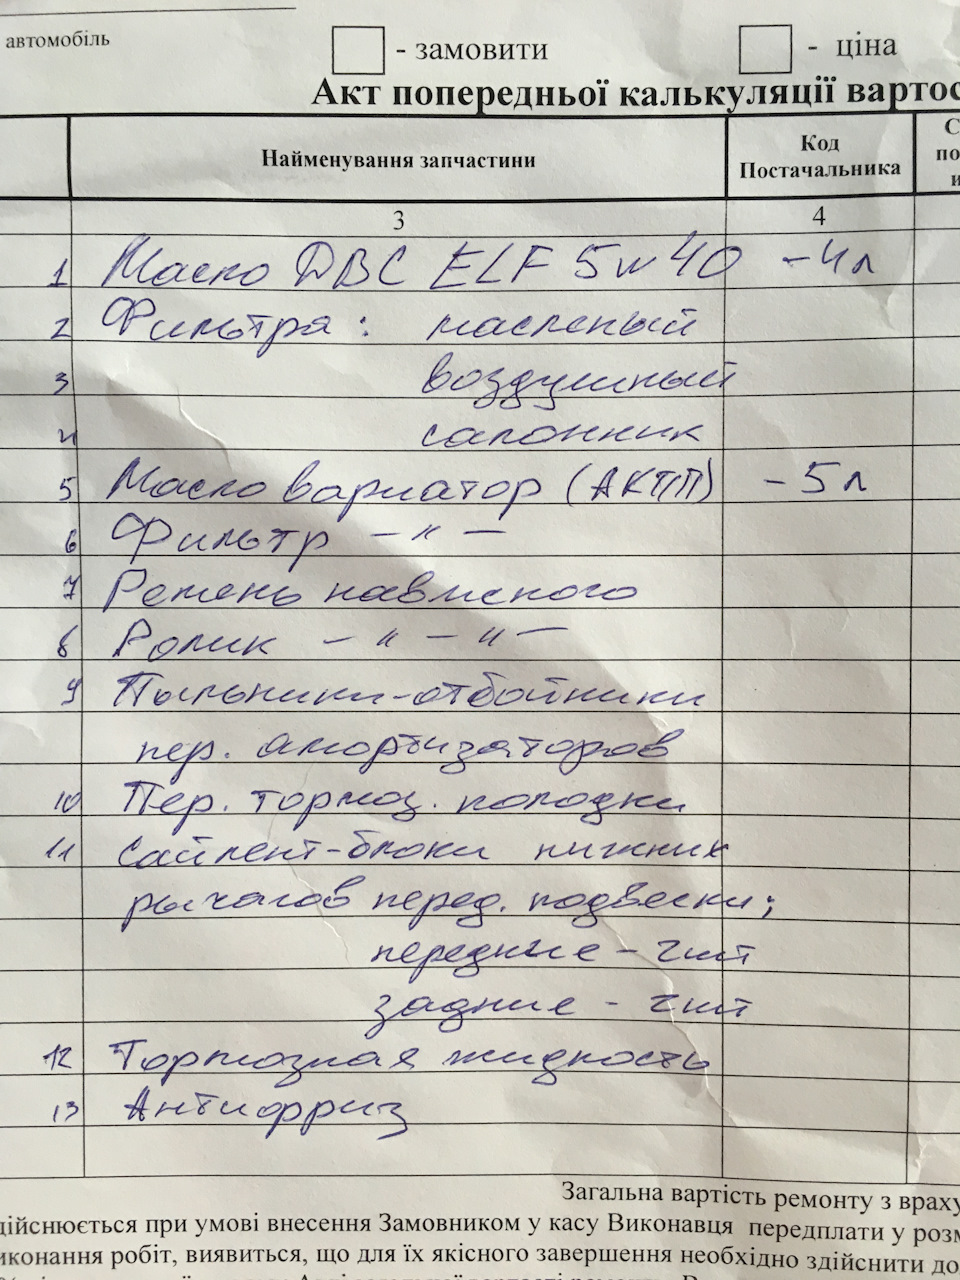 автомобіль
- замовити
- ціна
Акт попередньої калькуляції вартос
Найменування запчастини
Код
Постачальника
С
по
и
3
4
1 Масло ДВС ELF 5w40 - 4л
2 Фильтра: масленый
3 воздушный
4 салонник
5 Масло вариатор (АКПП) - 5л
6 Фильтр - " -
7 Ремень навесного
8 Ролик - " - " -
9 Пыльники-отбойники
пер. амортизаторов
10 Пер. тормоз. колодки
11 Сайлент-блоки нижних
рычагов перед. подвески;
передние - 2шт
задние - 2шт
12 Тормозная жидкость
13 Антифриз
Загальна вартість ремонту з враху
дійснюється при умові внесення Замовником у касу Виконавця передплати у розм
иконання робіт, виявиться, що для їх якісного завершення необхідно здійснити до